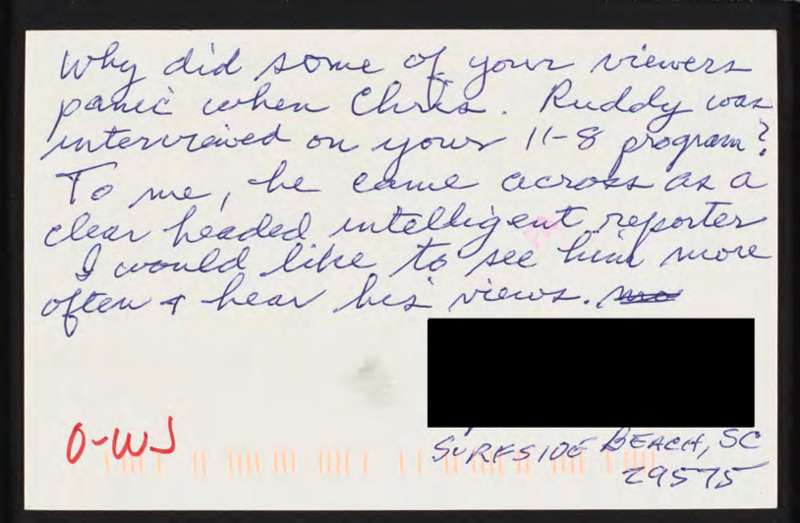 Why did some of your viewers
panic when Chris. Ruddy was
interviewed on your 11-8 program?
To me, he came across as a
clear headed intelligent reporter
I would like to see him more
often & hear his views.
O-WJ
SURFSIDE BEACH, SC
29575